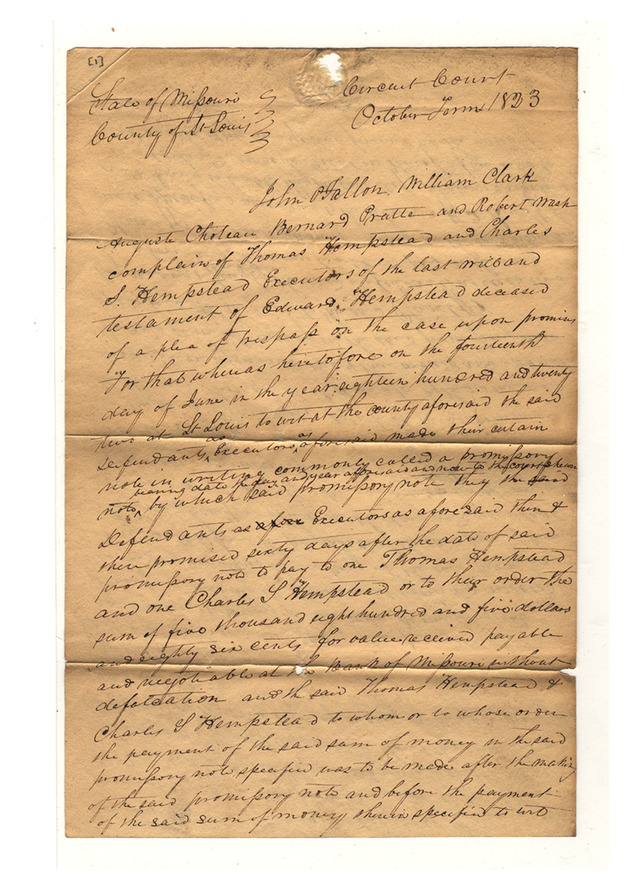 [1]
State of Missouri
County of St Louis
Circuit Court
October Term 1833
John OFallon, William Clark
Auguste Choteau Bernard Pratte and Robert Wash
complain of Thomas Hempstead and Charles
S. Hempstead Executors of the last will and
testament of Edward Hempstead deceased
of a plea of trespass on the case upon promises
For that whereas heretofore on the fourteenth
day of June in the year eighteen hundred and twenty
two at St Louis to wit at the county aforesaid the said
Defendants as Executors as aforesaid made their certain
note in writing commonly called a promissory
bearing date the day and year aforesaid and now to the court shown
note, by which said promissory note they the said
Defendants as afore Executors as aforesaid then &
there promised sixty days after the date of said
promissory note to pay to one Thomas Hempstead
and one Charles S Hempstead or to their order the
sum of five thousand eight hundred and five dollars
and eighty six cents for value received payable
and negotiable at the Bank of Missouri without
defalcation and the said Thomas Hempstead &
Charles S Hempstead to whom or to whose order
the payment of the said sum of money in the said
promissory note specified was to be made after the making
of the said promissory note and before the payment
of the said sum of money therein specified to wit